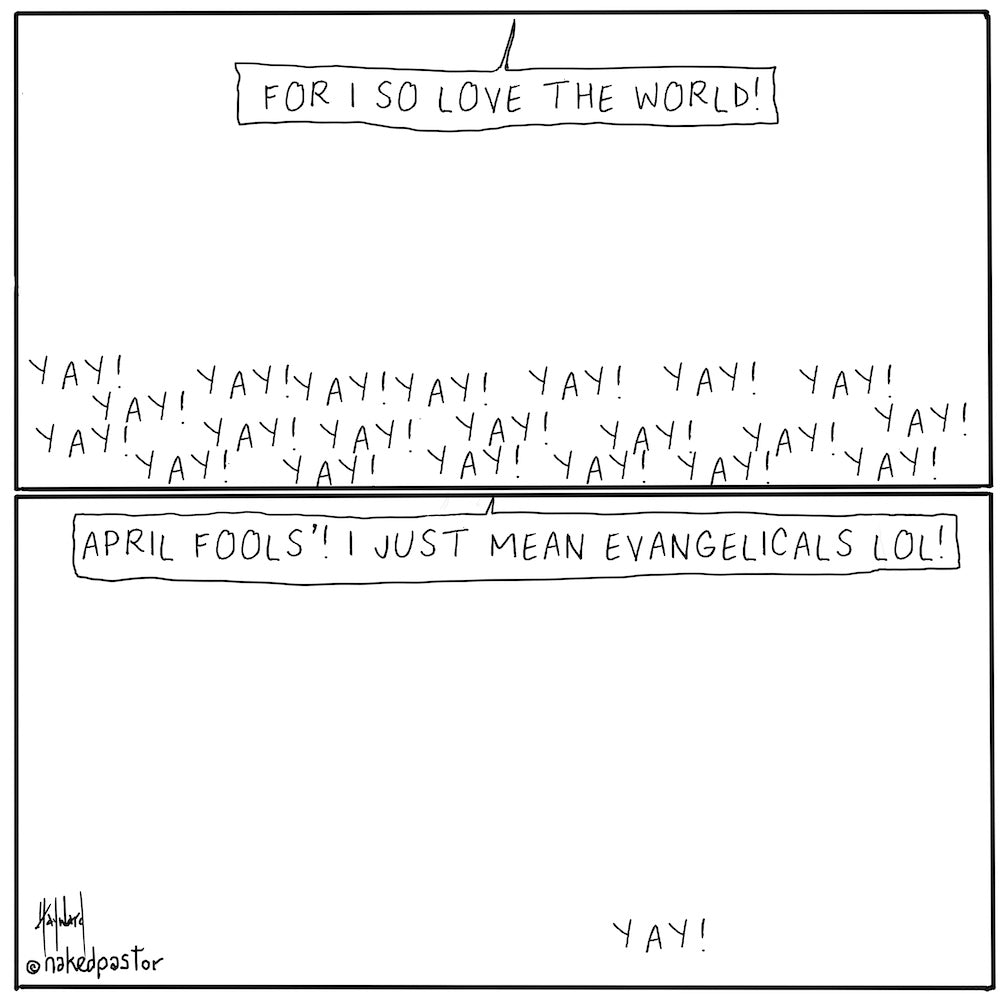 FOR I SO LOVE THE WORLD!
YAY! YAY! YAY! YAY! YAY! YAY! YAY!
YAY! YAY!
YAY! YAY! YAY! YAY! YAY! YAY!
YAY! YAY! YAY! YAY! YAY! YAY!
APRIL FOOLS'! I JUST MEAN EVANGELICALS LOL!
YAY!
Hayward
©nakedpastor